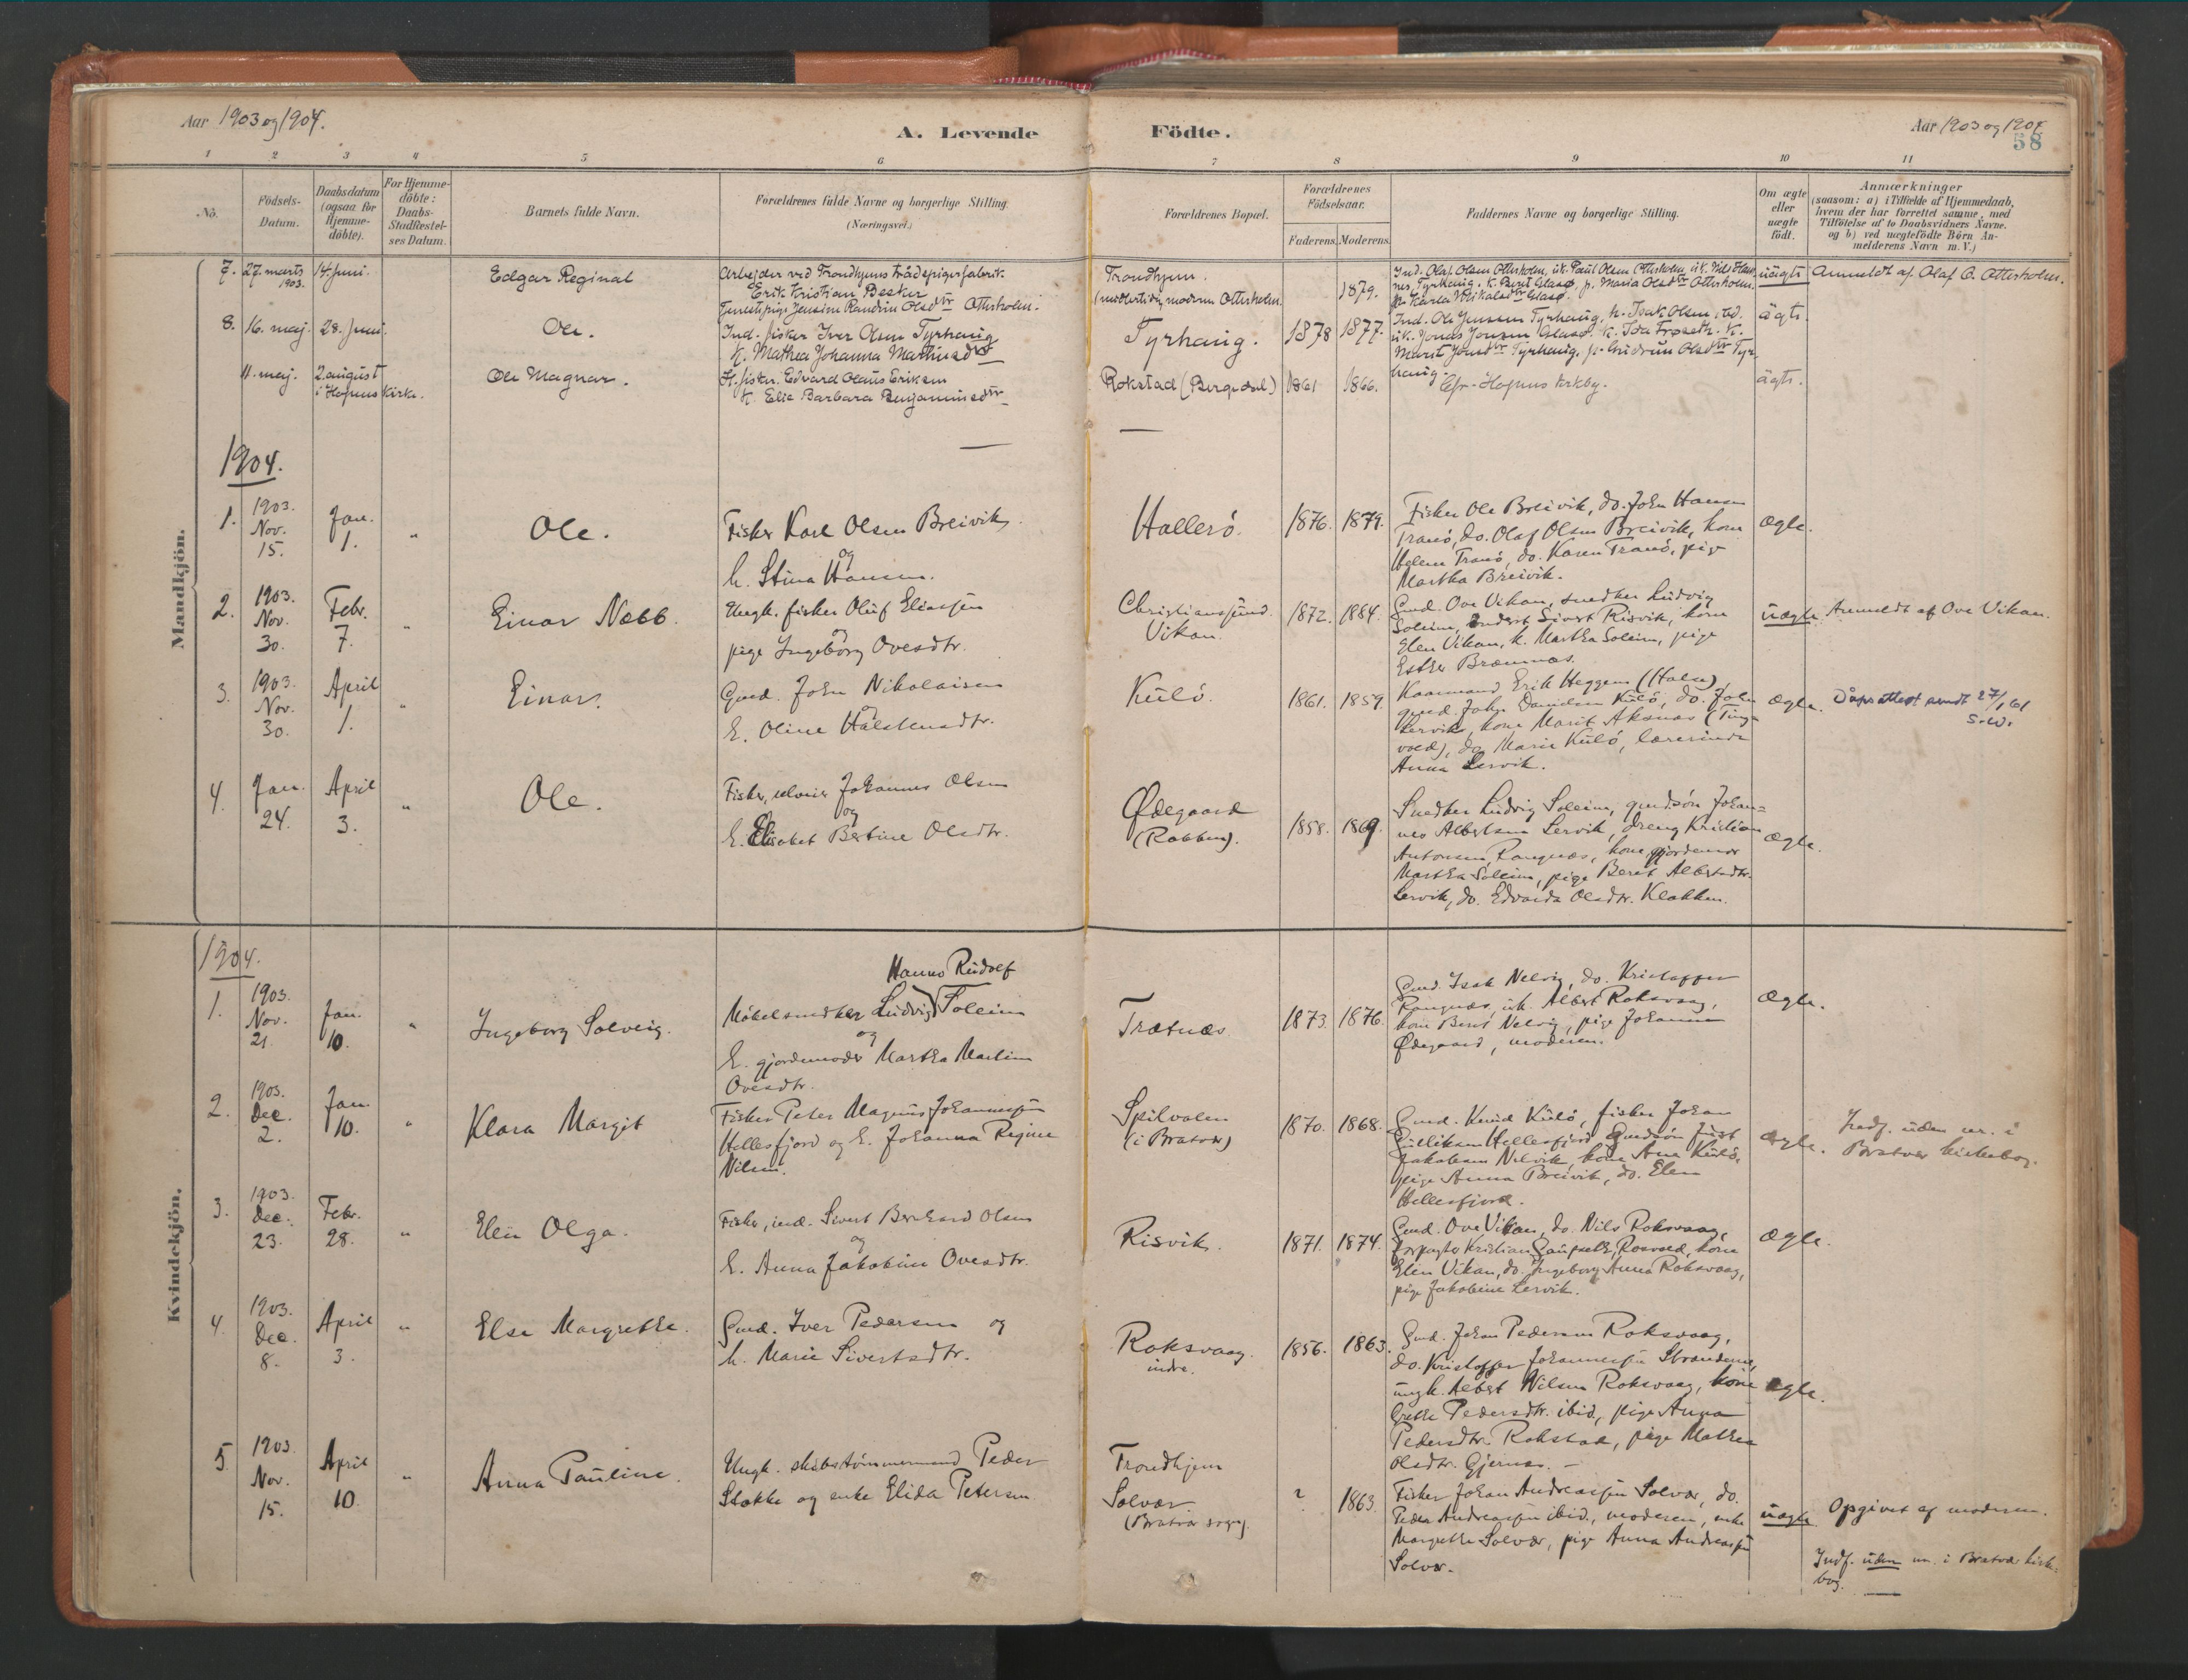 Aar 1903 og 1904.
A. Levende Födte.
Aar 1903 og 1904
58
1 2 3 4 5 6 7 8 9 10 11
No.
Födsels-Datum.
Daabsdatum (ogsaa for Hjemme-döbte).
For Hjemme-döbte: Daabs-Stadfæstel-ses Datum.
Barnets fulde Navn.
Forældrenes fulde Navne og borgerlige Stilling (Næringsvei.)
Forældrenes Bopæl.
Forældrenes Födselsaar.
Faderens. Moderens.
Faddernes Navne og borgerlige Stilling.
Om ægte eller uægte födt.
Anmærkninger
(saasom: a) i Tilfælde af Hjemmedaab,
hvem der har forrettet samme, med
Tilföielse af to Daabsvidners Navne.
og b) ved uægtefödte Börn An-
melderens Navn m.V.)
Mandkjön.
7. 27. marts 1903. 14. juni.
Edgar Reginal
Arbejder ved Trondhjems trådspigerfabrik
Erik Kristian Becker
Olsdtr Otterholm.
Trondhjem.
(midlertidig, moderen Otterholm.
1879.
Ind. Olaf Olsen Otterholm, uk. Paul Olsen Otterholm, uk. Nils
Tyrhaug. k. Berit Glasø, p. Maria Olsdtr Otterholm.
p. Karla Glasø.
uägte
Anmeldt af Olaf O. Otterholm.
8. 16. maj. 28. juni
Ole.
Ind. fisker Iver Olsen Tyrhaug
K. Mathea Johanna
Tyrhaug.
1878 1877.
Ind. Ole Jensen Tyrhaug, k. Isak Olsen ibd.
uk. Jonas Jonsen Glasø. k. Ida Frøseth. k.
Marit Tyrhaug. p. Gudrun Olsdtr Tyr
haug.
ägte
11. maj. 2. august
i Hopens Kirke.
Ole Magnar.
fisker Edvard Olaus Eriksen
K. Elie Barbara Benjaminsdtr
Rokstad (Bergdal)
1861 1866.
Efr. Hopens kirkbg.
ägte.
1904.
1. 1903. Nov. 15. Jan. 1. "
Ole.
Fisker Karl Olsen Breivik
og
h. Stina Hansen.
Hallerö.
1876. 1879.
Fisker Ole Breivik, do. John Hansen
Tranö, do. Olaf Olsen Breivik, kone
Helene Tranö, do. Karen Tranö, pige
Martha Breivik.
Ægte.
2. 1903. Nov. 30. Febr. 7. "
Einar Næbb.
Ungk. fisker Oluf Eliassen
og
pige Ingeborg Ovesdtr.
Christianssund.
Vikan.
1872. 1884.
Gmd. Ove Vikan, snedker Ludvig
Soleim, Sivert Risvik, kone
Elen Vikan, k. Martha Soleim, pige
Esther Bremnes.
uægte
Anmeldt af Ove Vikan.
3. 1903. Nov. 30. April 1. "
Einar.
Gmd. John Nikolaisen
og
h. Oline Halstensdtr.
Kulö.
1861. 1859.
Kaarmand Erik Heggem (Halse),
gmd. Johan Danielsen Kulö, do. John
Lervik, kone Marit Aksnæs (Ting-
vold), do. Marie Kulö, lærerinde
Anna Lervik.
Ægte.
Dåpsattest sendt 27/1 61
S.W.
4. Jan. 24. April 3. "
Ole.
Fisker, selveier Johannes Olsen
og
h. Elisabet Bertine Olsdtr.
Ødegaard
(Rabben).
1858. 1869.
Snedker Ludvig Soleim, gmdsön Johan-
nes Albertsen Lervik, dreng Kristian
Antonsen Ramsnæs, kone gjordemor
Martha Soleim, pige Berit Albertsdtr.
Lervik, do. Edvarda Olsdtr. Klakken.
Ægte.
Kvindekjön.
1904.
1. 1903. Nov. 21. Jan. 10. "
Ingeborg Solveig.
Hanno Rudolf
Möbelsnedker Ludvig Soleim
og
h. gjordemoder Martha Martine
Ovesdtr.
Trætnæs
1873. 1876.
Gmd. Isak Nelvig, do. Kristoffer
Ramsnæs, uk. Albert Roksvaag,
kone Berit Nelvig, pige Johanna
Ødegaard, moderen.
Ægte.
2. 1903. Dec. 2. Jan. 10. "
Klara Margit
Fisker Peter Magnus Johannessen
Hellesfjord og h. Johanna Regine
Nilsen.
Spilvalen
(i Bratvær)
1870. 1868.
Gmd. Knud Kulö, fisker Johan
Gulliksen Hellesfjord Gmdsön Just
Jakobsen Nelvik, kone Ane Kulö,
pige Anna Breivik, do. Elen
Hellesfjord.
Ægte.
Indf. uden nr. i
Bratvær kirkebog.
3. 1903. Dec. 23. Febr. 28. "
Elen Olga.
Fisker, ind. Sivert Bernhard Olsen
og
h. Anna Jakobine Ovesdtr.
Risvik.
1871. 1874.
Gmd. Ove Vikan, do. Nils Roksvaag,
forpagter Kristian Rosvold, kone
Elen Vikan, do. Ingeborg Anna Roksvaag,
pige Jakobine Lervik.
Ægte.
4. 1903. Dec. 8. April 3. "
Else Margrethe.
Gmd. Iver Pedersen og
h. Marie Sivertsdtr.
Roksvaag
indre.
1856. 1863.
Gmd. Johan Pedersen Roksvaag,
do. Kristoffer Johannessen Strandene,
ungk. Albert Nilsen Roksvaag, kone
Grethe Pedersdtr. ibid., pige Anna
Pedersdtr. Rokstad, pige Mathea
Olsdtr. Gjernes. –
Ægte.
5. 1903. Nov. 15. April 10. "
Anna Pauline.
Ungk. skibstömmermand Peder
Stokke og enke Elida Petersen
Trondhjem
Solvær
(Bratvær sogn).
? 1863.
Fisker Johan Andreassen Solvær, do.
Peder Andreassen ibid., moderen, enke
Margrethe Solvær, pige Anna Andreassen
Solvær.
uægte
Opgivet af moderen.
Indf. uden nr. i Bratvær kirke-
bog.